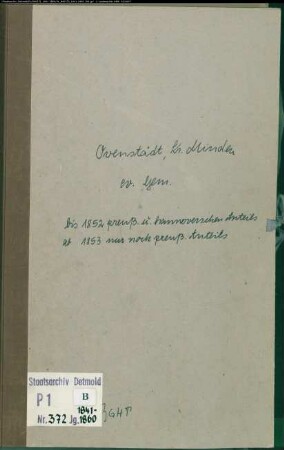 Ovenstädt, Kr. Minden
ev. Gem.
bis 1852 preuß. u. hannoverschen Anteils
ab 1853 nur noch preuß. Anteils
Staatsarchiv Detmold
P1 B
1841-
Nr. 372 Jg. 1860